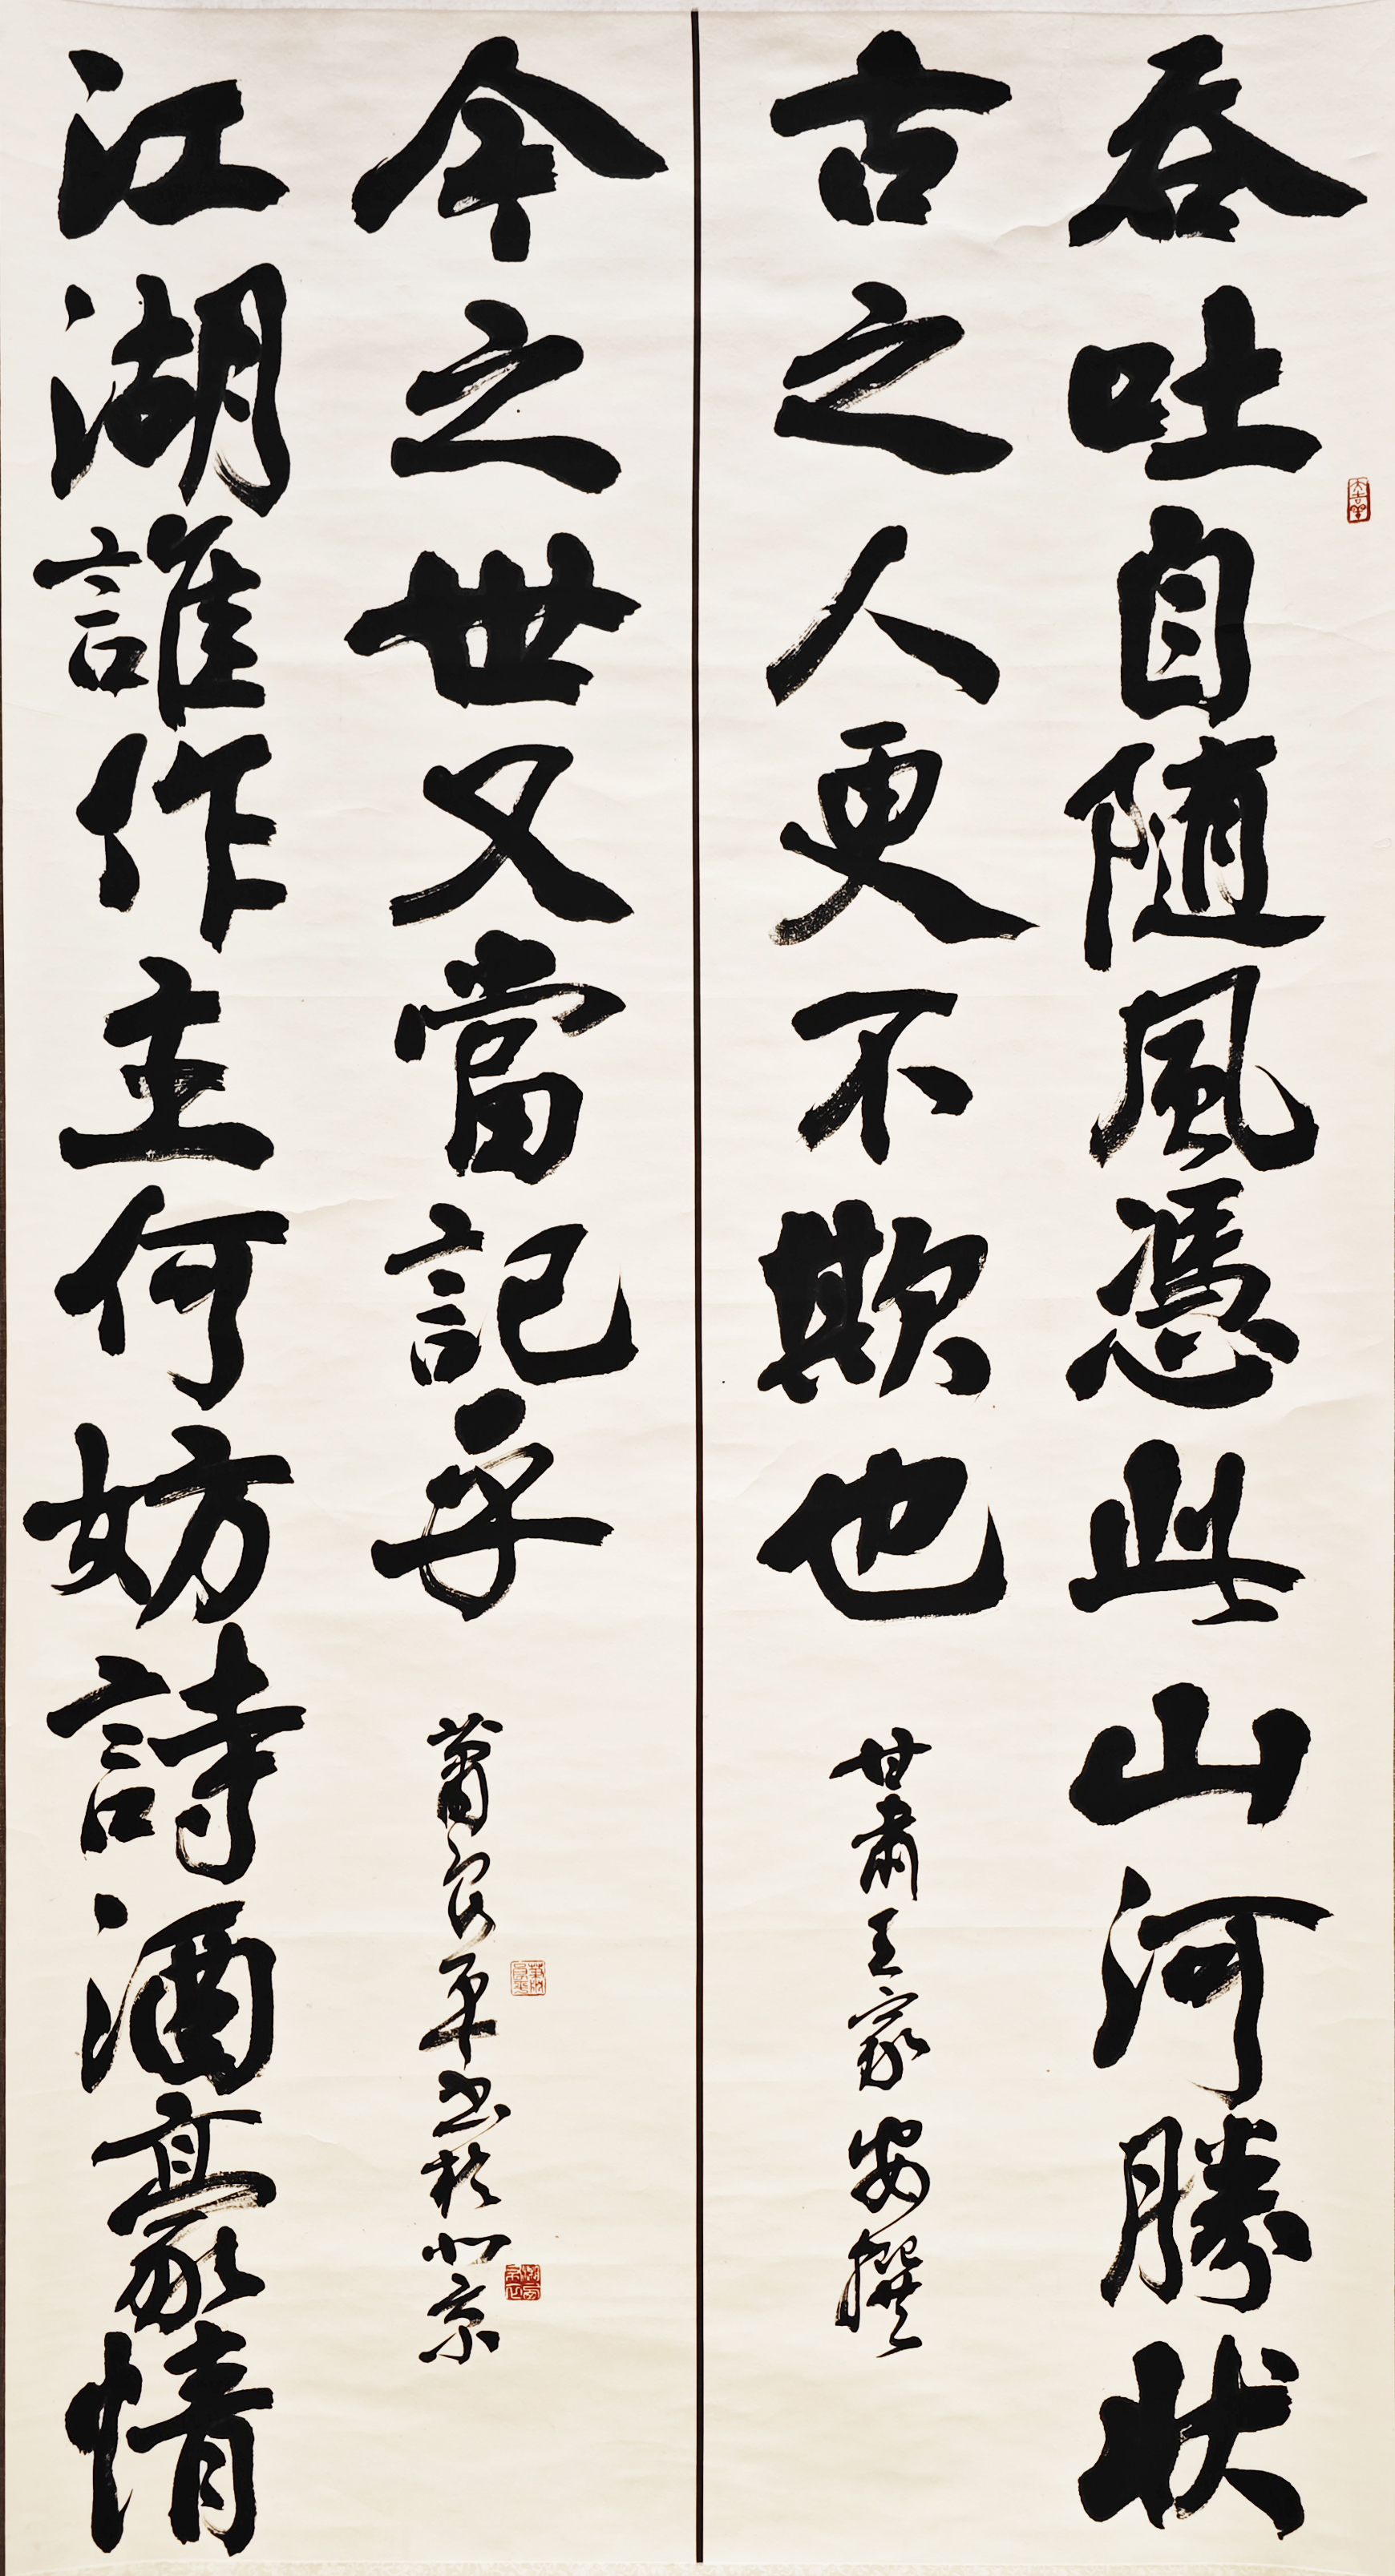 吞吐自随風憑此山河勝状
古之人更不欺也
甘肅王家安撰
江湖誰作主何妨詩酒豪情
今之世又當記乎
蕭平书於北京